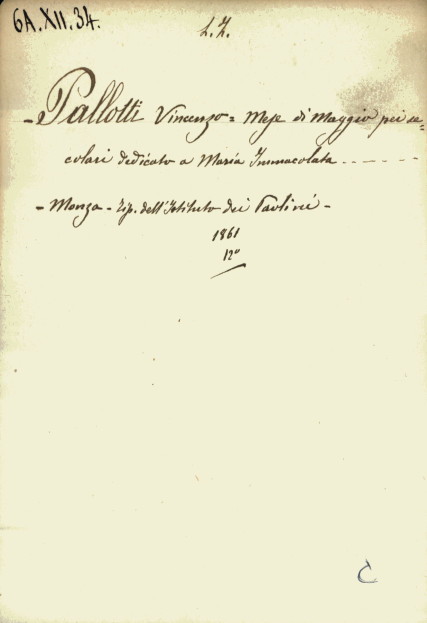 6A.XII.34.
L.Z.
- Pallotti Vincenzo = Mese di Maggio pei se=
colari dedicato a Maria Immacolata . - - - - -
- Monza - Tip. dell'Istituto dei Paolini -
1861
12°
C